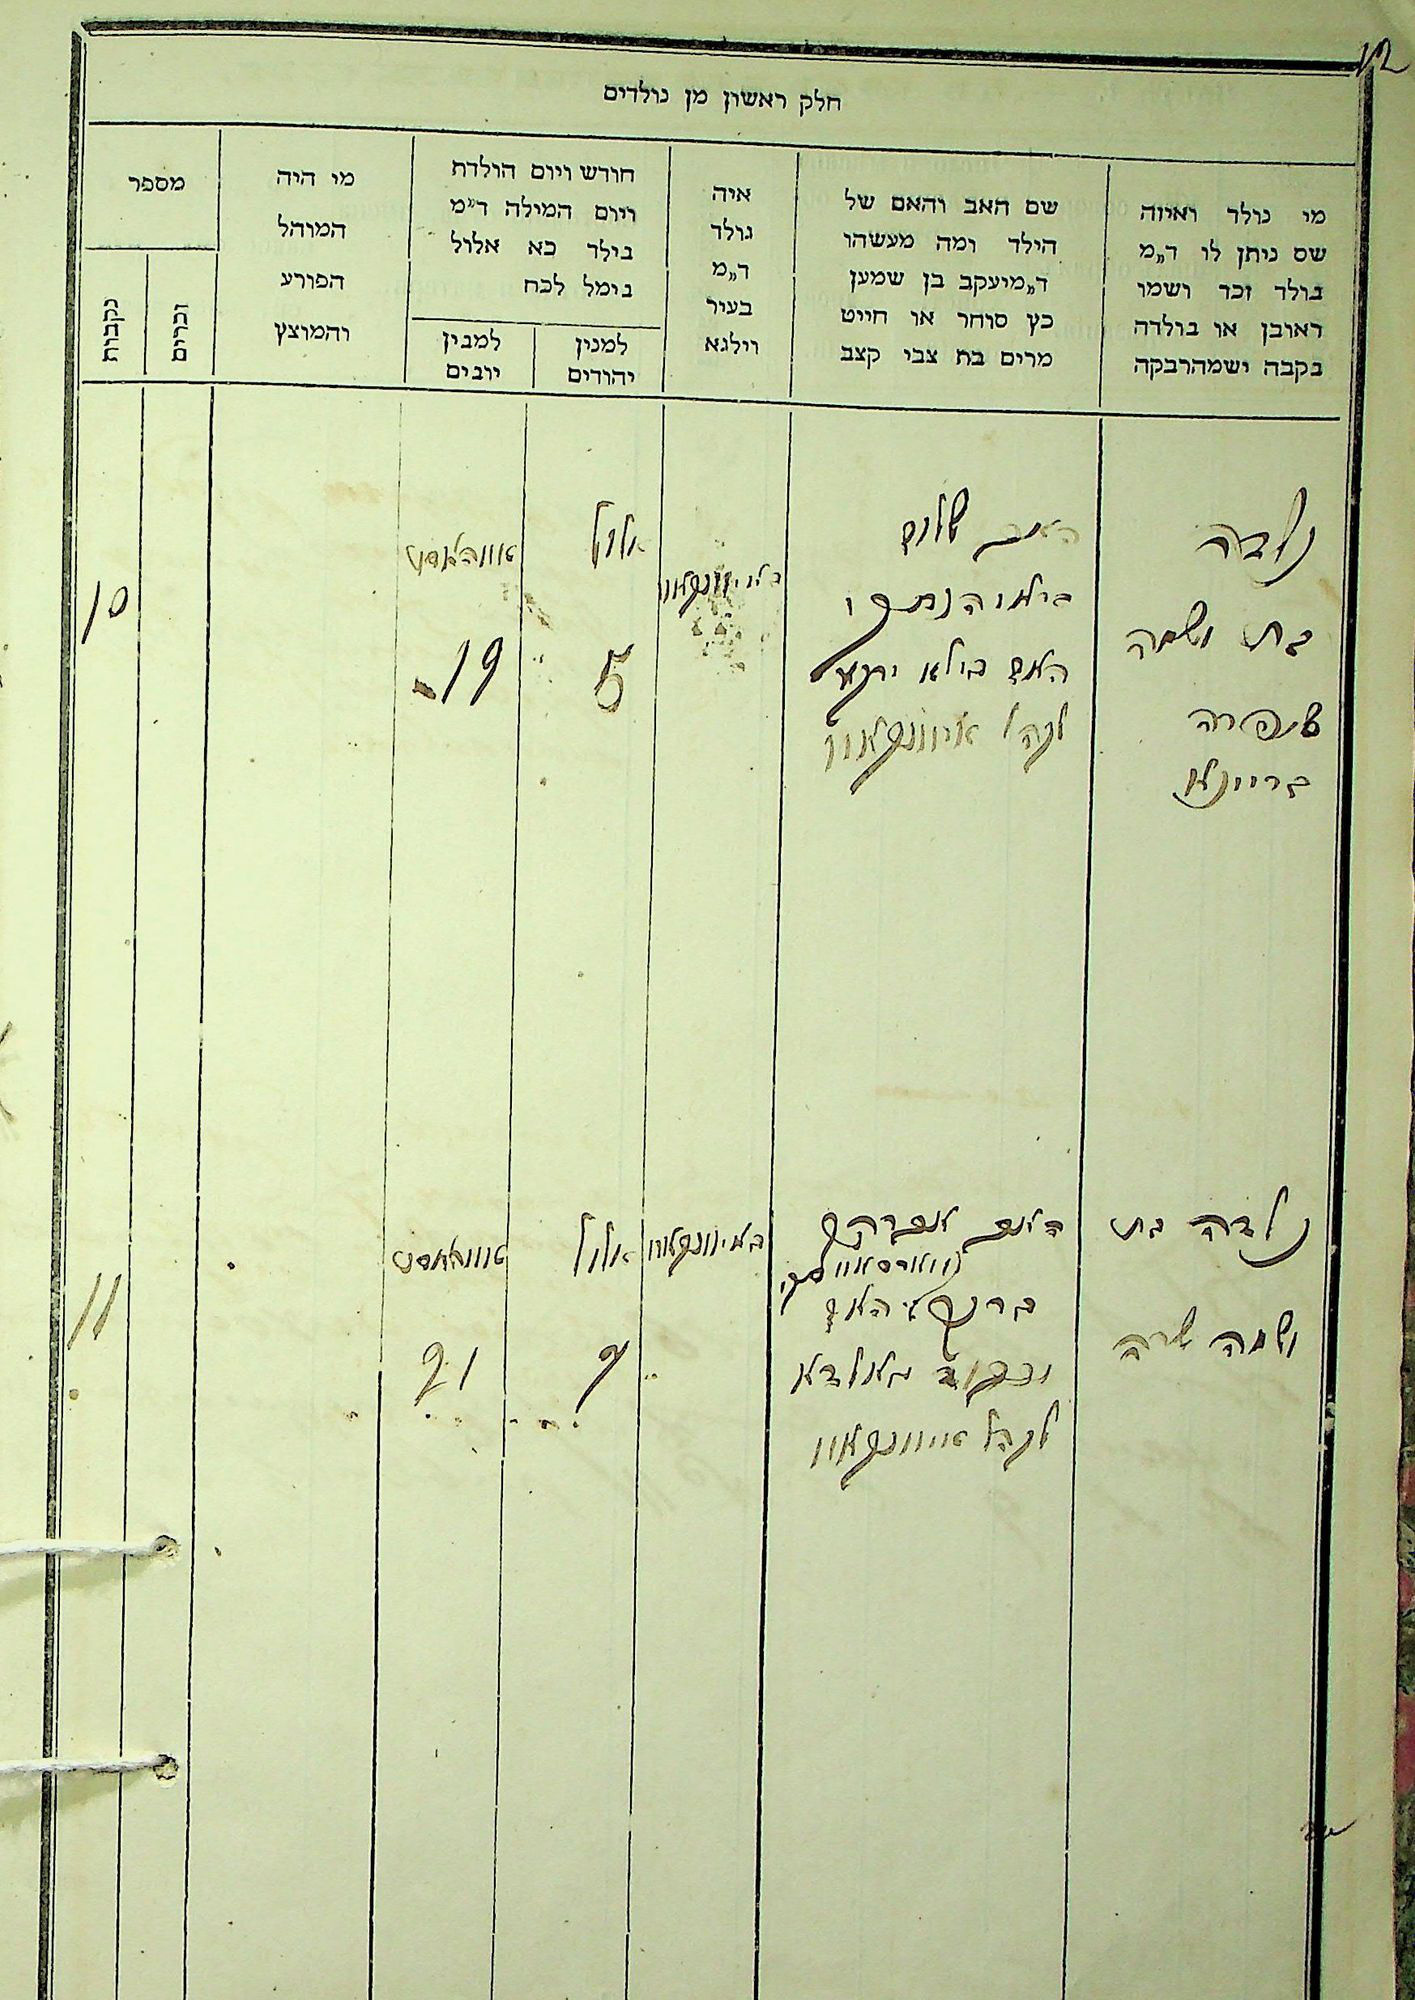 12
חלק ראשון מן נולדים
מי נולד ואיזה
שם ניתן לו ד״מ
נולד זכר ושמו
ראובן או נולדה
נקבה ושמהרבקה
שם האב והאם של
הילד ומה מעשהו
ד״מיעקב בן שמען
כץ סוחר או חייט
מרים בת צבי קצב
איה
נולד
ד״מ
בעיר
וילנא
חודש ויום הולדת
ויום המילה ד״מ
נילד כא אלול
נימל לכח
למנין
יהודים
למנין
יונים
מי היה
המוהל
הפורע
והמוצץ
מספר
זכרים
נקבות
נולדה
בת ושמה
שפרה
בריינא
האב שלום
האם ביילא
לקהל איוונקאוו
באיוונקאוו
אלול
5
אווגאסט
19
10
נולדה בת
ושמה שרה
האב אברהם
האם
גאלדא
לקהל אייוונקאוו
באיוונקאוו
אלול
7
אווגאסט
21
11